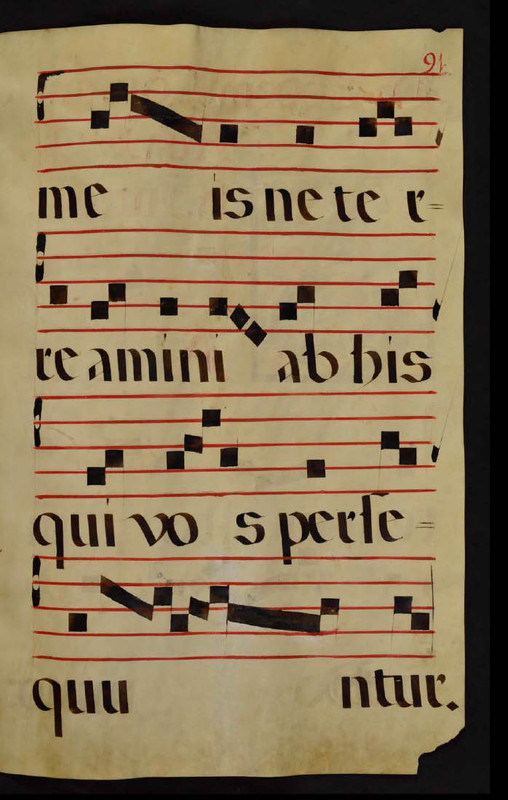 91
me is ne te r=
re amini ab his
qui vo s perse=
quu ntur.